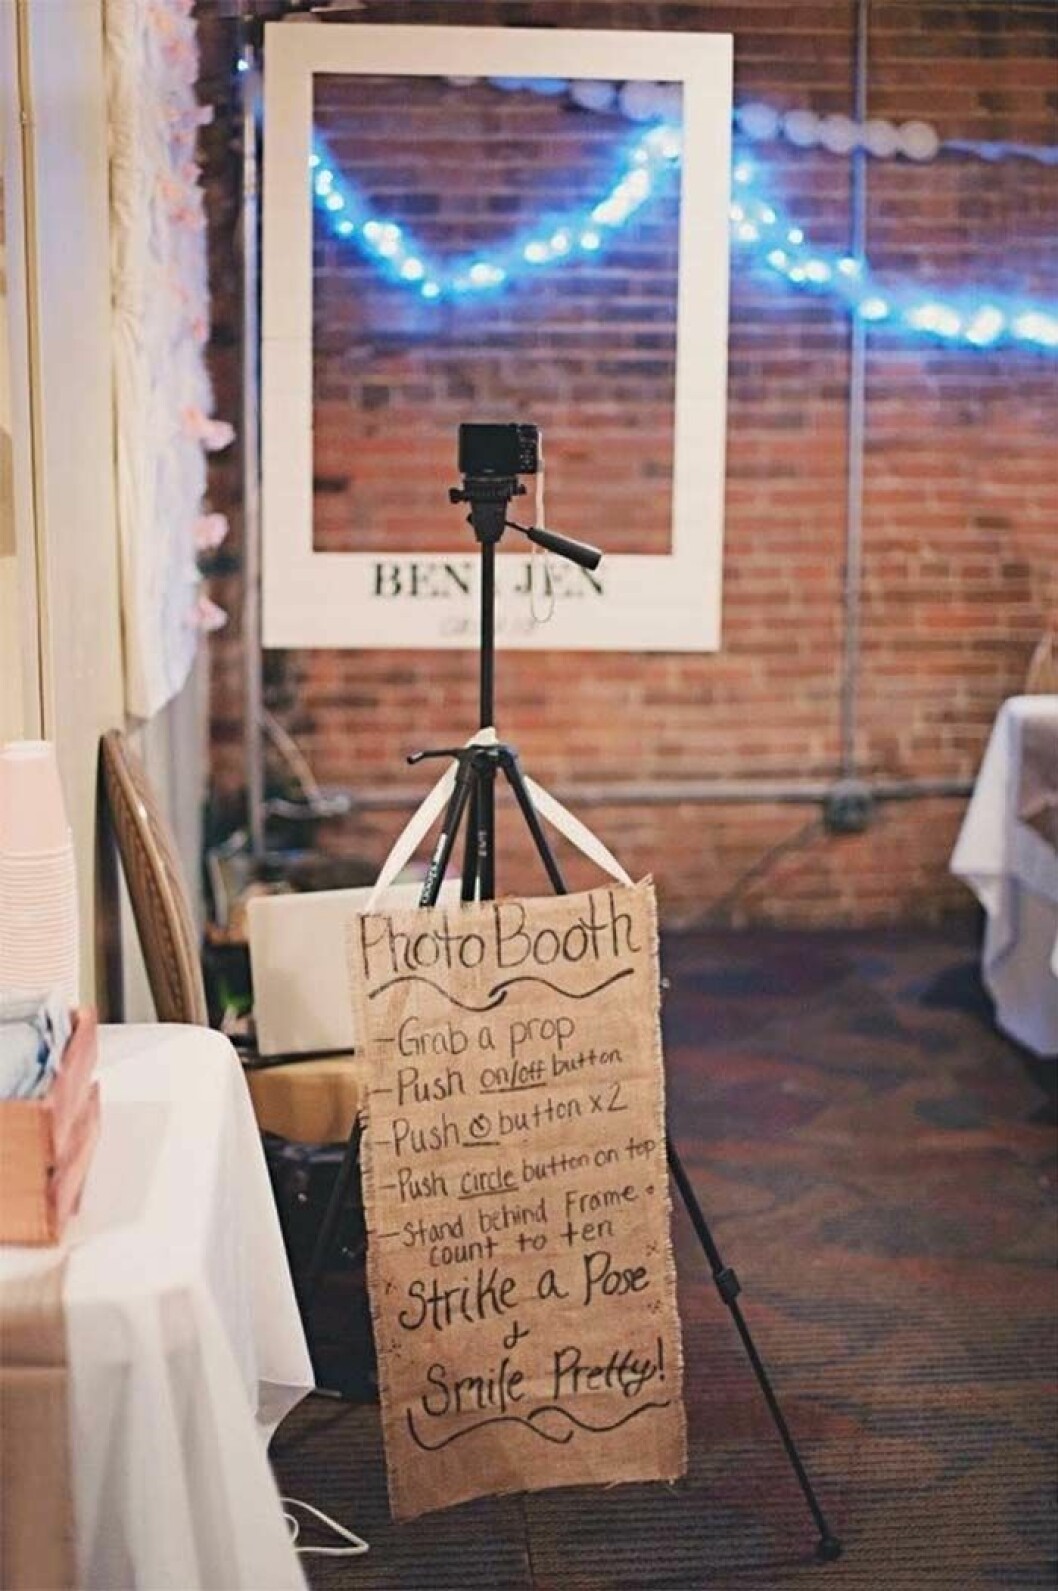 BEN JEN
Photo Booth
-Grab a prop
-Push on/off button
-Push button x2
-Push circle button on top
-Stand behind Frame &
count to ten
Strike a Pose
&
Smile Pretty!